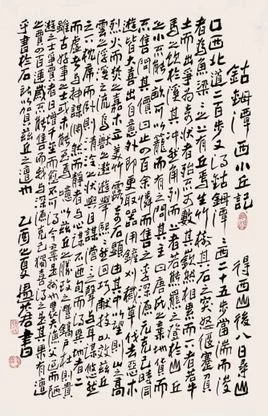 鈷鉧潭西小丘記 得西山後八日尋山
口西北道二百步又得鈷鉧潭潭西二十五步當湍而浚
者為魚梁梁之上有丘焉生竹樹其石之突怒偃蹇負
土而出爭為奇狀者殆不可數其嶔然相累而下者若牛
馬之飲於溪其沖然角列而上者若熊羆之登於山丘
之小不能畝可以籠而有之問其主曰唐氏之棄地貨而
不售問其價曰止四百余憐而售之李深源元克己時同
遊皆大喜出自意外即更取器用鏟刈穢草伐去惡木
烈火而焚之嘉木立美竹露奇石顯由其中以望則山之高
雲之浮溪之流鳥獸之遨遊舉熙熙然迴巧獻技以效茲丘
之下枕席而臥則清泠之狀與目謀瀯瀯之聲與耳謀悠然
而虛者與神謀淵然而靜者與心謀不匝旬而得異地者二
雖古好事之士或未能至焉噫以茲丘之勝致之灃鎬鄠杜則貴
遊之士爭買者日增千金而愈不可得今棄是州也農夫漁父過而陋
之賈四百連歲不能售而我與深源克己獨喜得之是其果有遭
乎書於石所以賀茲丘之遭也 乙酉之夏 書